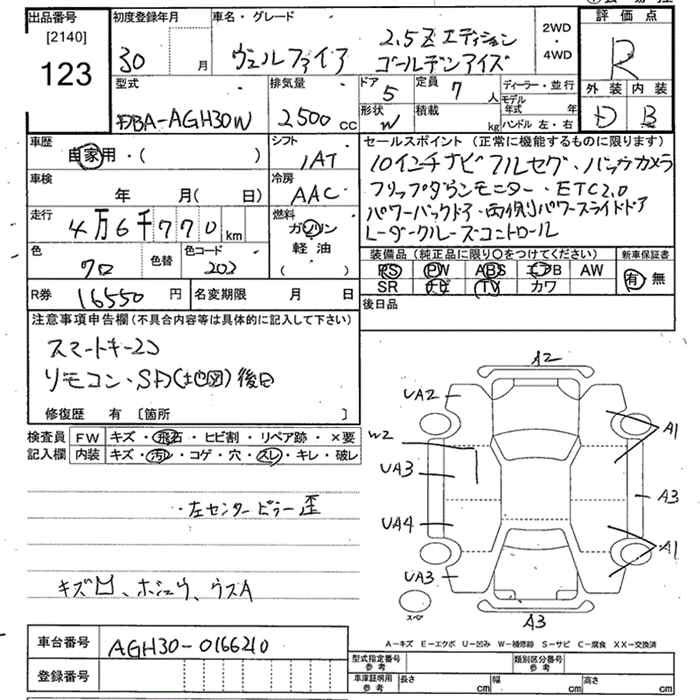 出品番号
[2140]
123
初度登録年月
30 月
車名・グレード
ヴェルファイア
2.5Z エディション
ゴールデンアイズ
2WD
・
4WD
評価点
R
外装 内装
D B
型式
DBA-AGH30W
排気量
2500 CC
ドア
5
定員
7 人
形状
W
積載
kg
ディーラー・並行
モデル年式 年
ハンドル 左・右
車歴
自家用・( )
シフト
IAT
車検
年 月( 日)
冷房
AAC
走行
4万6千770 km
燃料
ガソリン
軽油
( )
色
クロ
色替
色コード
202
R券 16550 円
名変期限 月 日
セールスポイント (正常に機能するものに限ります)
10インチナビ フルセグ、バックカメラ
フリップダウンモニター・ETC2.0
パワーバックドア・両側パワースライドドア
レーダークルーズコントロール
装備品 (純正品に限り○をつけてください)
新車保証書
PS PW ABS エアB AW
SR ナビ TV カワ
有・無
後日品
注意事項申告欄(不具合内容等は具体的に記入して下さい)
スマートキー2コ
リモコン、SD(地図)後日
修復歴 有 〔箇所 〕
検査員
記入欄
FW キズ・飛石・ヒビ割・リペア跡・×要
内装 キズ・汚レ・コゲ・穴・スレ・キレ・破レ
・左センターピラー歪
キズ凹、ホシュウ、ウスA
A2
UA2
A1
W2
UA3
A3
UA4
A1
UA3
スペア
A3
A－キズ E－エクボ U－凹み W－補修跡 S－サビ C－腐食 XX－交換済
車台番号 AGH30-0166210
登録番号
型式指定番号
参考
類別区分番号
参考
車庫証明用
参考
長さ cm 幅 cm 高さ cm